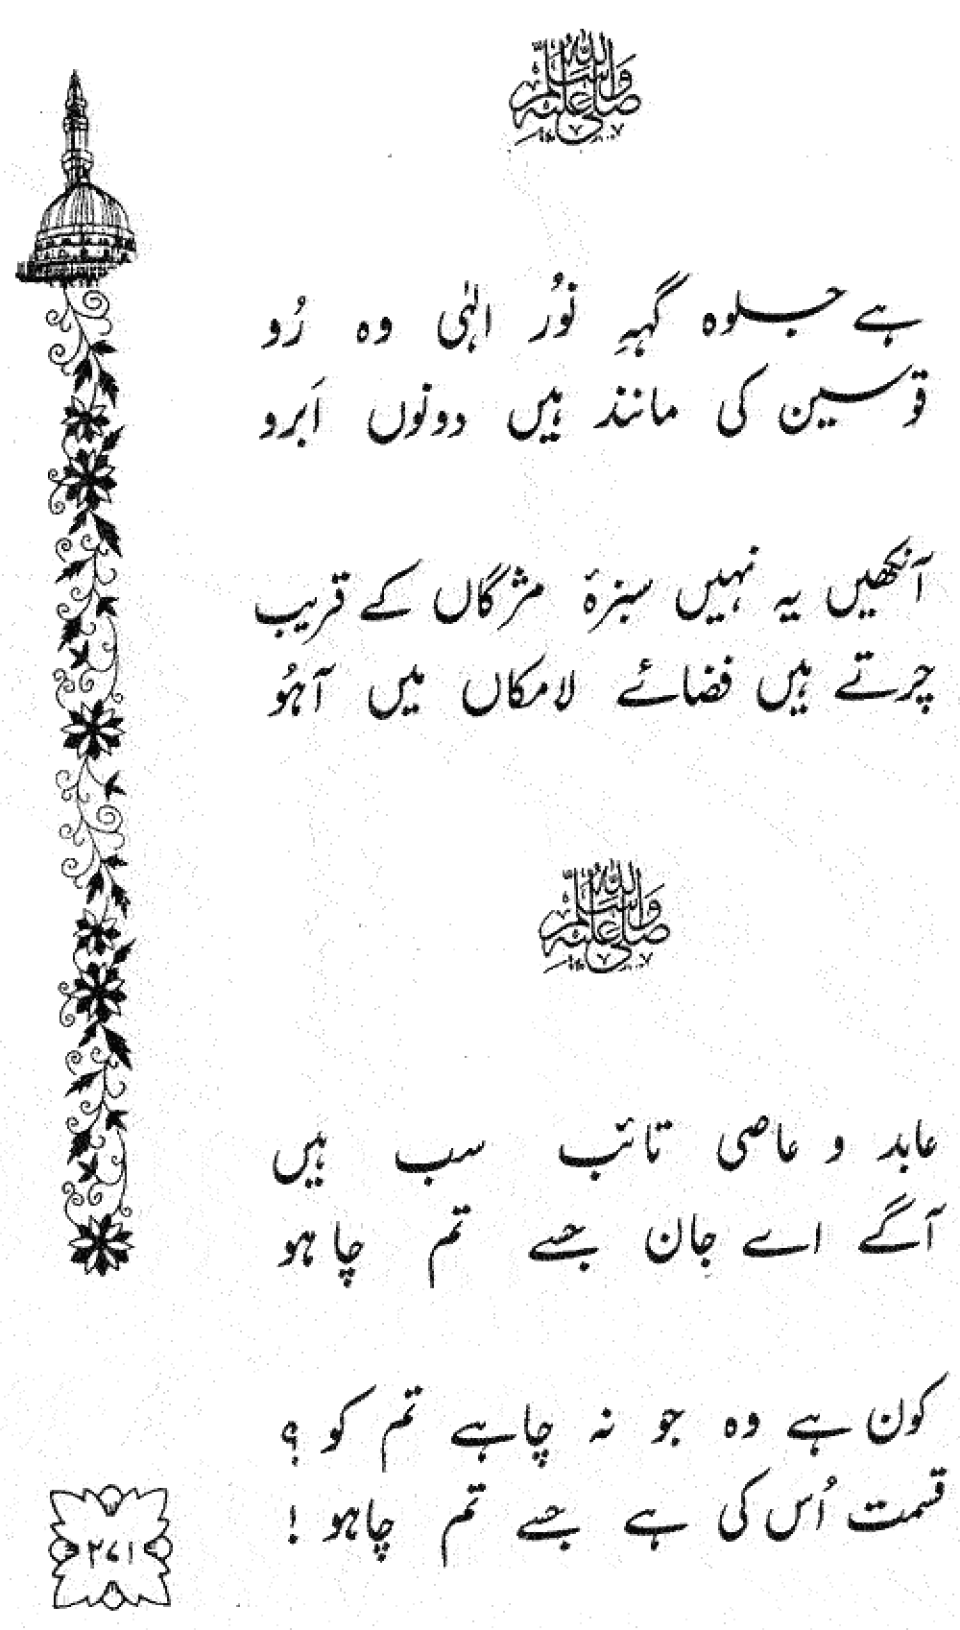 صلی اللہ علیہ وسلم
ہے جلوہ گہہِ نورُ الہٰی وہ رُو
قوسین کی مانند ہیں دونوں اَبرو
آنکھیں یہ نہیں سبزۂ مژگاں کے قریب
چرتے ہیں فضائے لامکاں میں آہُو
صلی اللہ علیہ وسلم
عابد و عاصی تائب سب ہیں
آگے اے جان جسے تم چاہو
کون ہے وہ جو نہ چاہے تم کو ؟
قسمت اُس کی ہے جسے تم چاہو !
۲۷۱